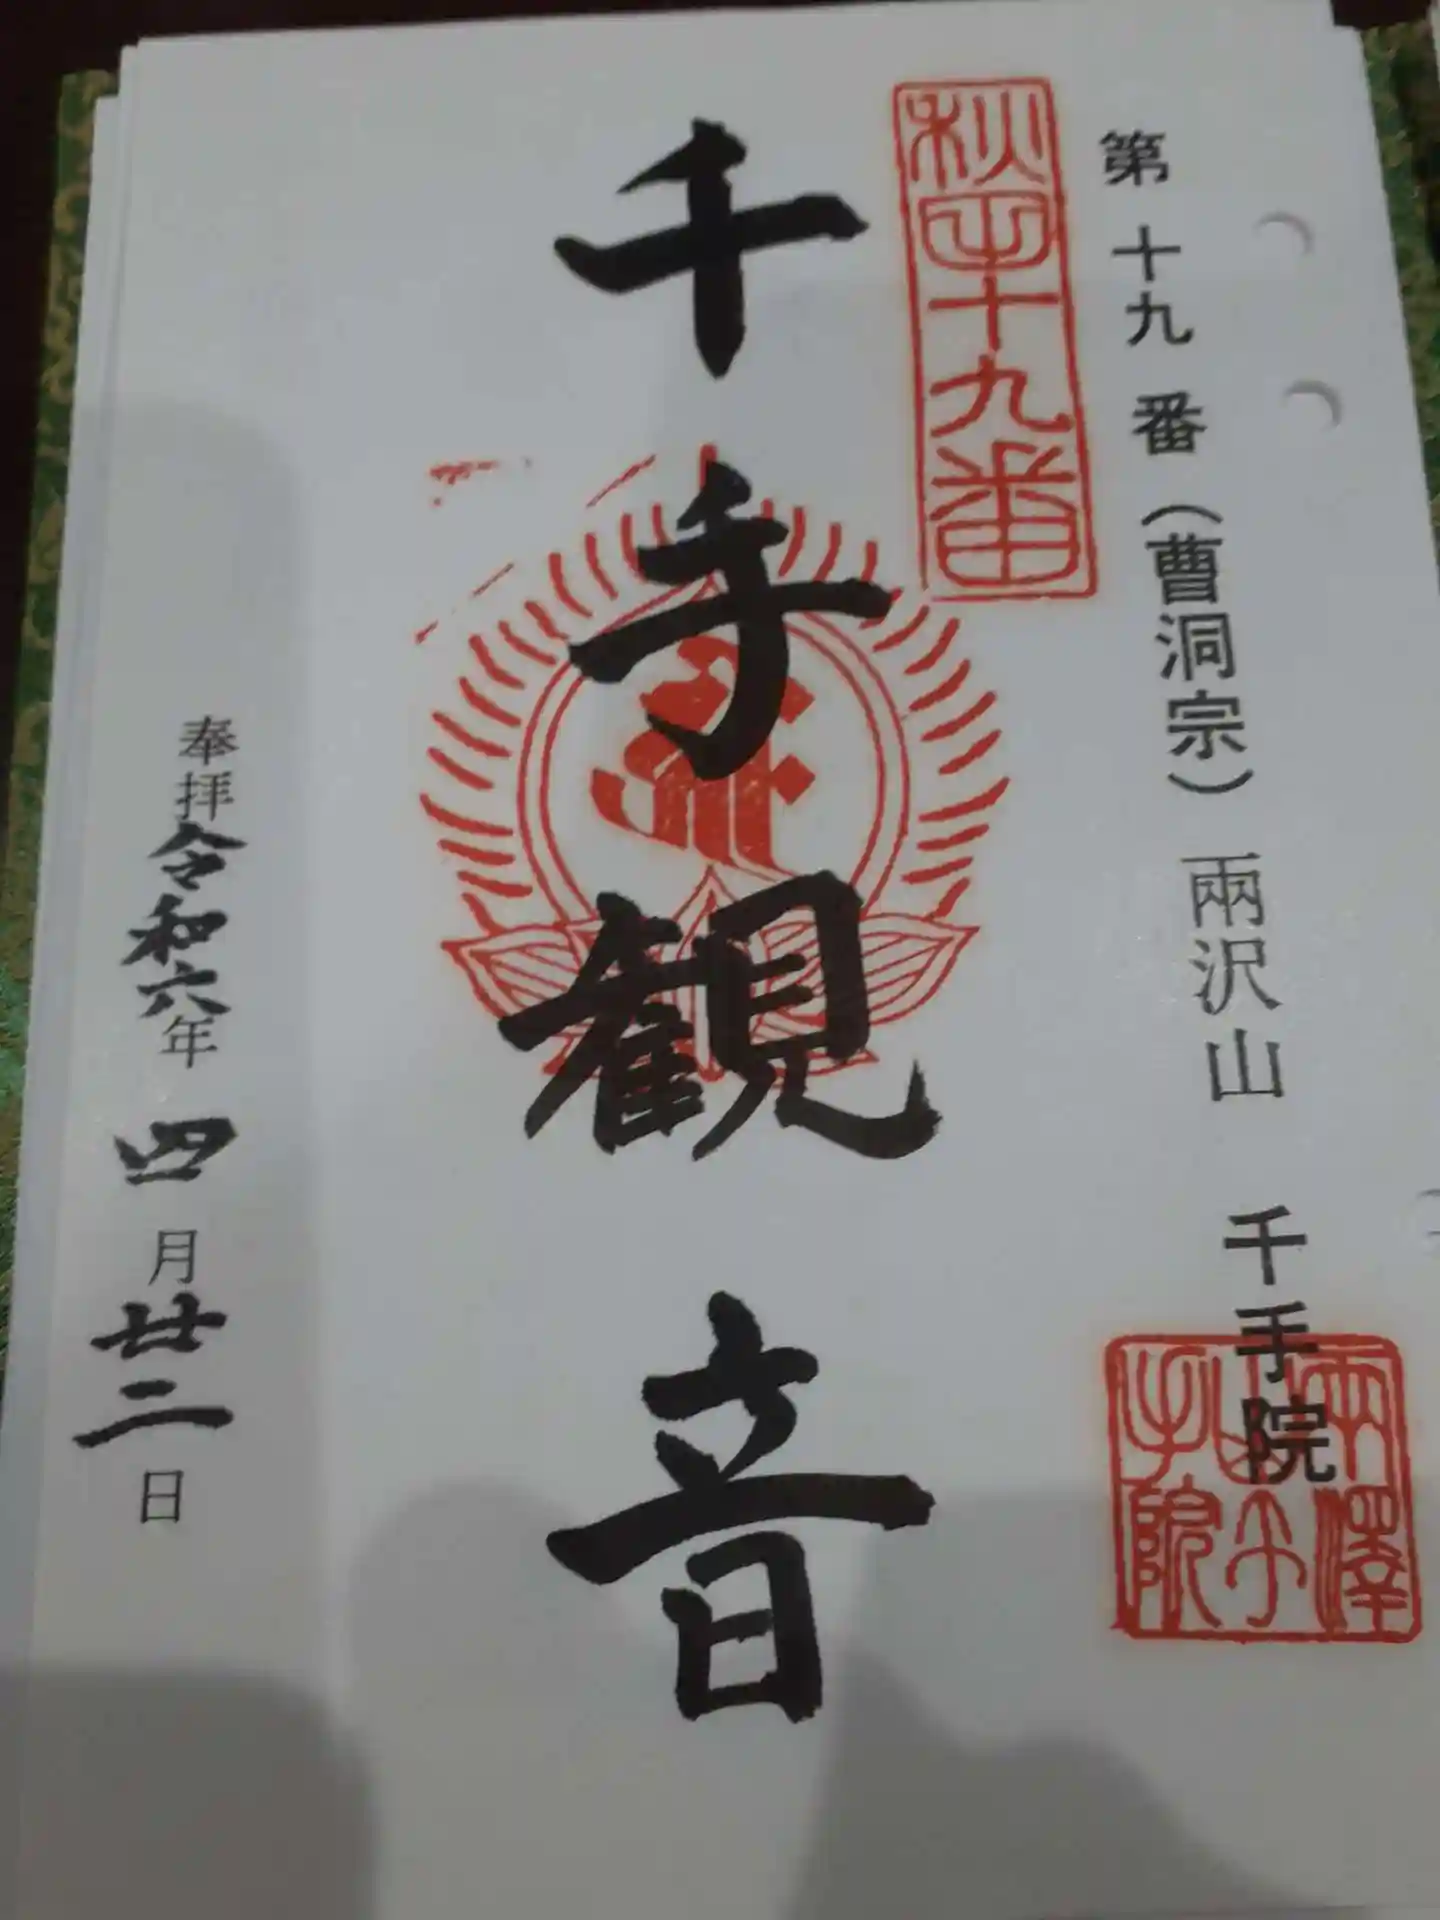 第十九番（曹洞宗）両沢山 千手院
秩父十九番
千手観音
両澤山千手院
奉拝 令和六年 四月廿二日